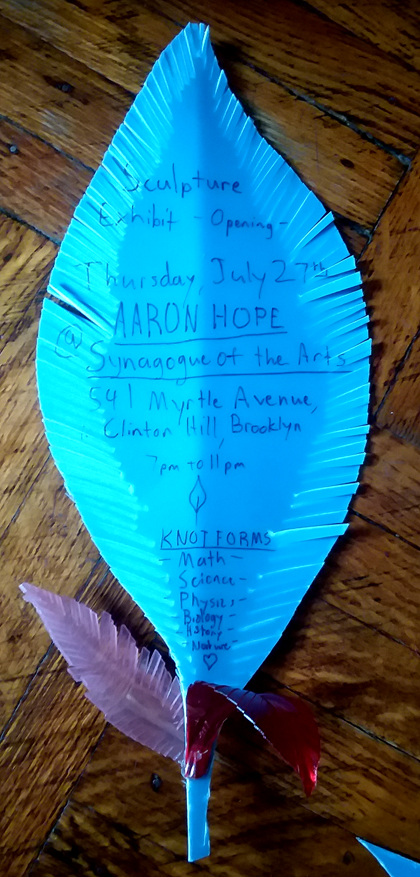 Sculpture
Exhibit - Opening -
Thursday, July 27th
AARON HOPE
@ Synagogue of the Arts
541 Myrtle Avenue,
Clinton Hill, Brooklyn
7pm to 11pm
KNOT FORMS
- Math -
Science -
- Physics -
Biology -
- History -
- Nature -